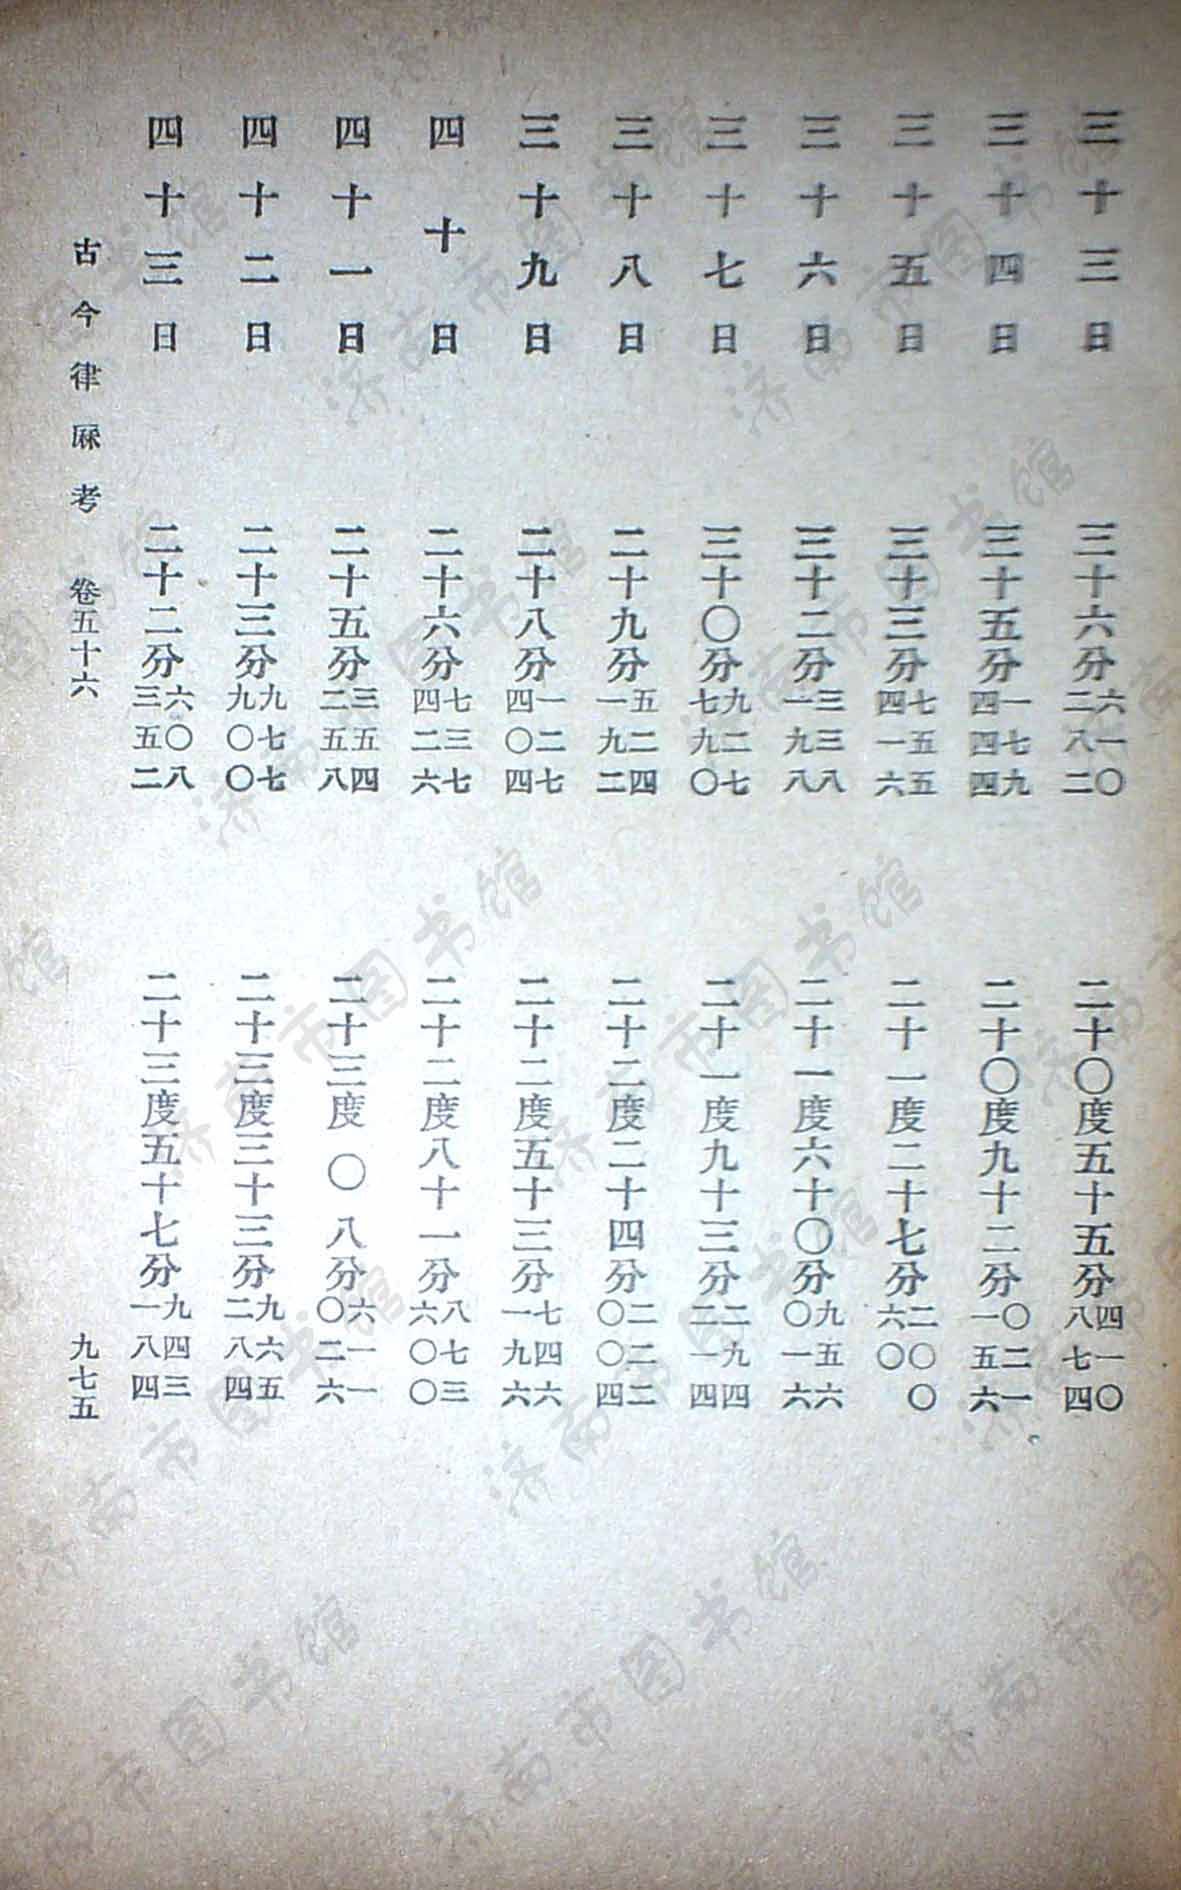 三十三日 三十六分六一〇二八二 二十〇度五十五分四一〇八七四
三十四日 三十五分一七九四四四 二十〇度九十二分〇二一一五六
三十五日 三十三分七五五四一六 二十一度二十七分二〇〇六〇
三十六日 三十二分三三八一九八 二十一度六十〇分九五六〇一六
三十七日 三十〇分九二七七九〇 二十一度九十三分二九四二一四
三十八日 二十九分五二四一九二 二十二度二十四分二二二〇〇四
三十九日 二十八分一二七四〇四 二十二度五十三分七四六一九六
四十日 二十六分七三七四二六 二十二度八十一分八七三六〇〇
四十一日 二十五分三五四二五八 二十三度〇八分六一一〇二六
四十二日 二十三分九七七九〇〇 二十三度三十三分九六五二八四
四十三日 二十二分六〇八三五二 二十三度五十七分九四三一八四
古今律厤考 卷五十六 九七五
济南市图书馆